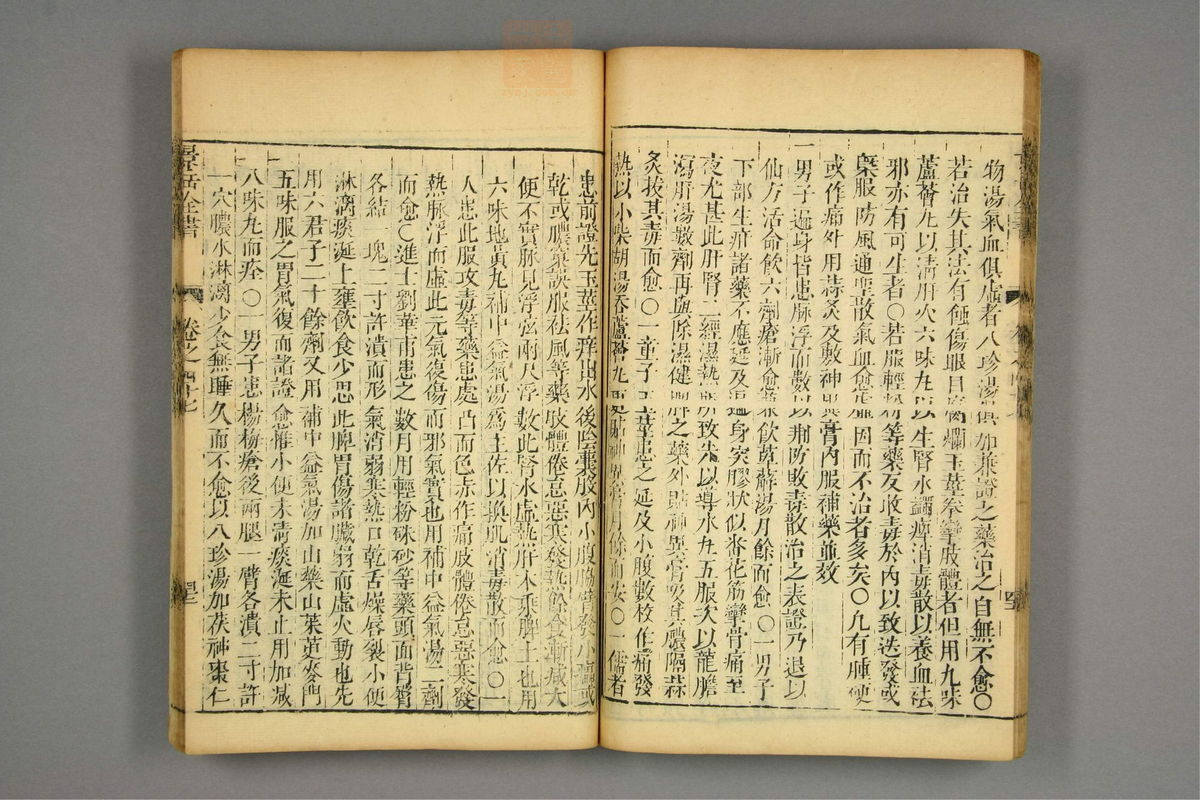 物湯氣血俱虛者八珍湯俱加兼證之藥治之自無不愈〇
若治失其法有蝕傷眼目腐爛玉莖拳攣肢體者但用九味
蘆薈丸以清肝火六味丸以生腎水蠲痺消毒散以養血祛
邪亦有可生者〇若服輕粉等藥反收毒於內以致迭發或
槩服防風通聖散氣血愈虛因而不治者多矣〇凡有腫硬
或作痛外用蒜灸及敷神異膏內服補藥並效
一男子遍身皆患脉浮而數以荊防敗毒散治之表證乃退以
仙方活命飲六劑瘡漸愈兼飲萆薢湯月餘而愈〇一男子
下部生疳諸藥不應延及遍身突腫狀似番花筋攣骨痛至
夜尤甚此肝腎二經濕熱所致先以導水丸五服次以龍膽
瀉肝湯數劑再與除濕健脾之藥外貼神異膏及其膿隔蒜
灸拔其毒而愈〇一童子玉莖患之延及小腹數枚作痛發
熱以小柴胡湯吞蘆薈丸更貼神異膏月餘而安〇一儒者
患前證先玉莖作痒出水後陰囊股內小腹脇臂發小𤺋或
乾或膿窠誤服祛風等藥肢體倦怠惡寒發熱飲食漸減大
便不實脉見浮弦兩尺浮數此腎水虛熱肝木乘脾土也用
六味地黃丸補中益氣湯爲主佐以換肌消毒散而愈〇一
人患此服攻毒等藥患處凸而色赤作痛肢體倦怠惡寒發
熱脉浮而虛此元氣復傷而邪氣實也用補中益氣湯二劑
而愈〇進士劉華甫患之數月用輕粉硃砂等藥頭面背臂
各結一塊二寸許潰而形氣消弱寒熱口乾舌燥唇裂小便
淋漓痰涎上壅飲食少思此脾胃傷諸臟弱而虛火動也先
用六君子二十餘劑又用補中益氣湯加山藥山茱萸麥門
五味服之胃氣復而諸證愈惟小便未清痰涎未止用加減
八味丸而痊〇一男子患楊梅瘡後兩腿一臂各潰二寸許
一穴膿水淋漓少食無睡久而不愈以八珍湯加茯神棗仁
景岳全書
卷之四十七